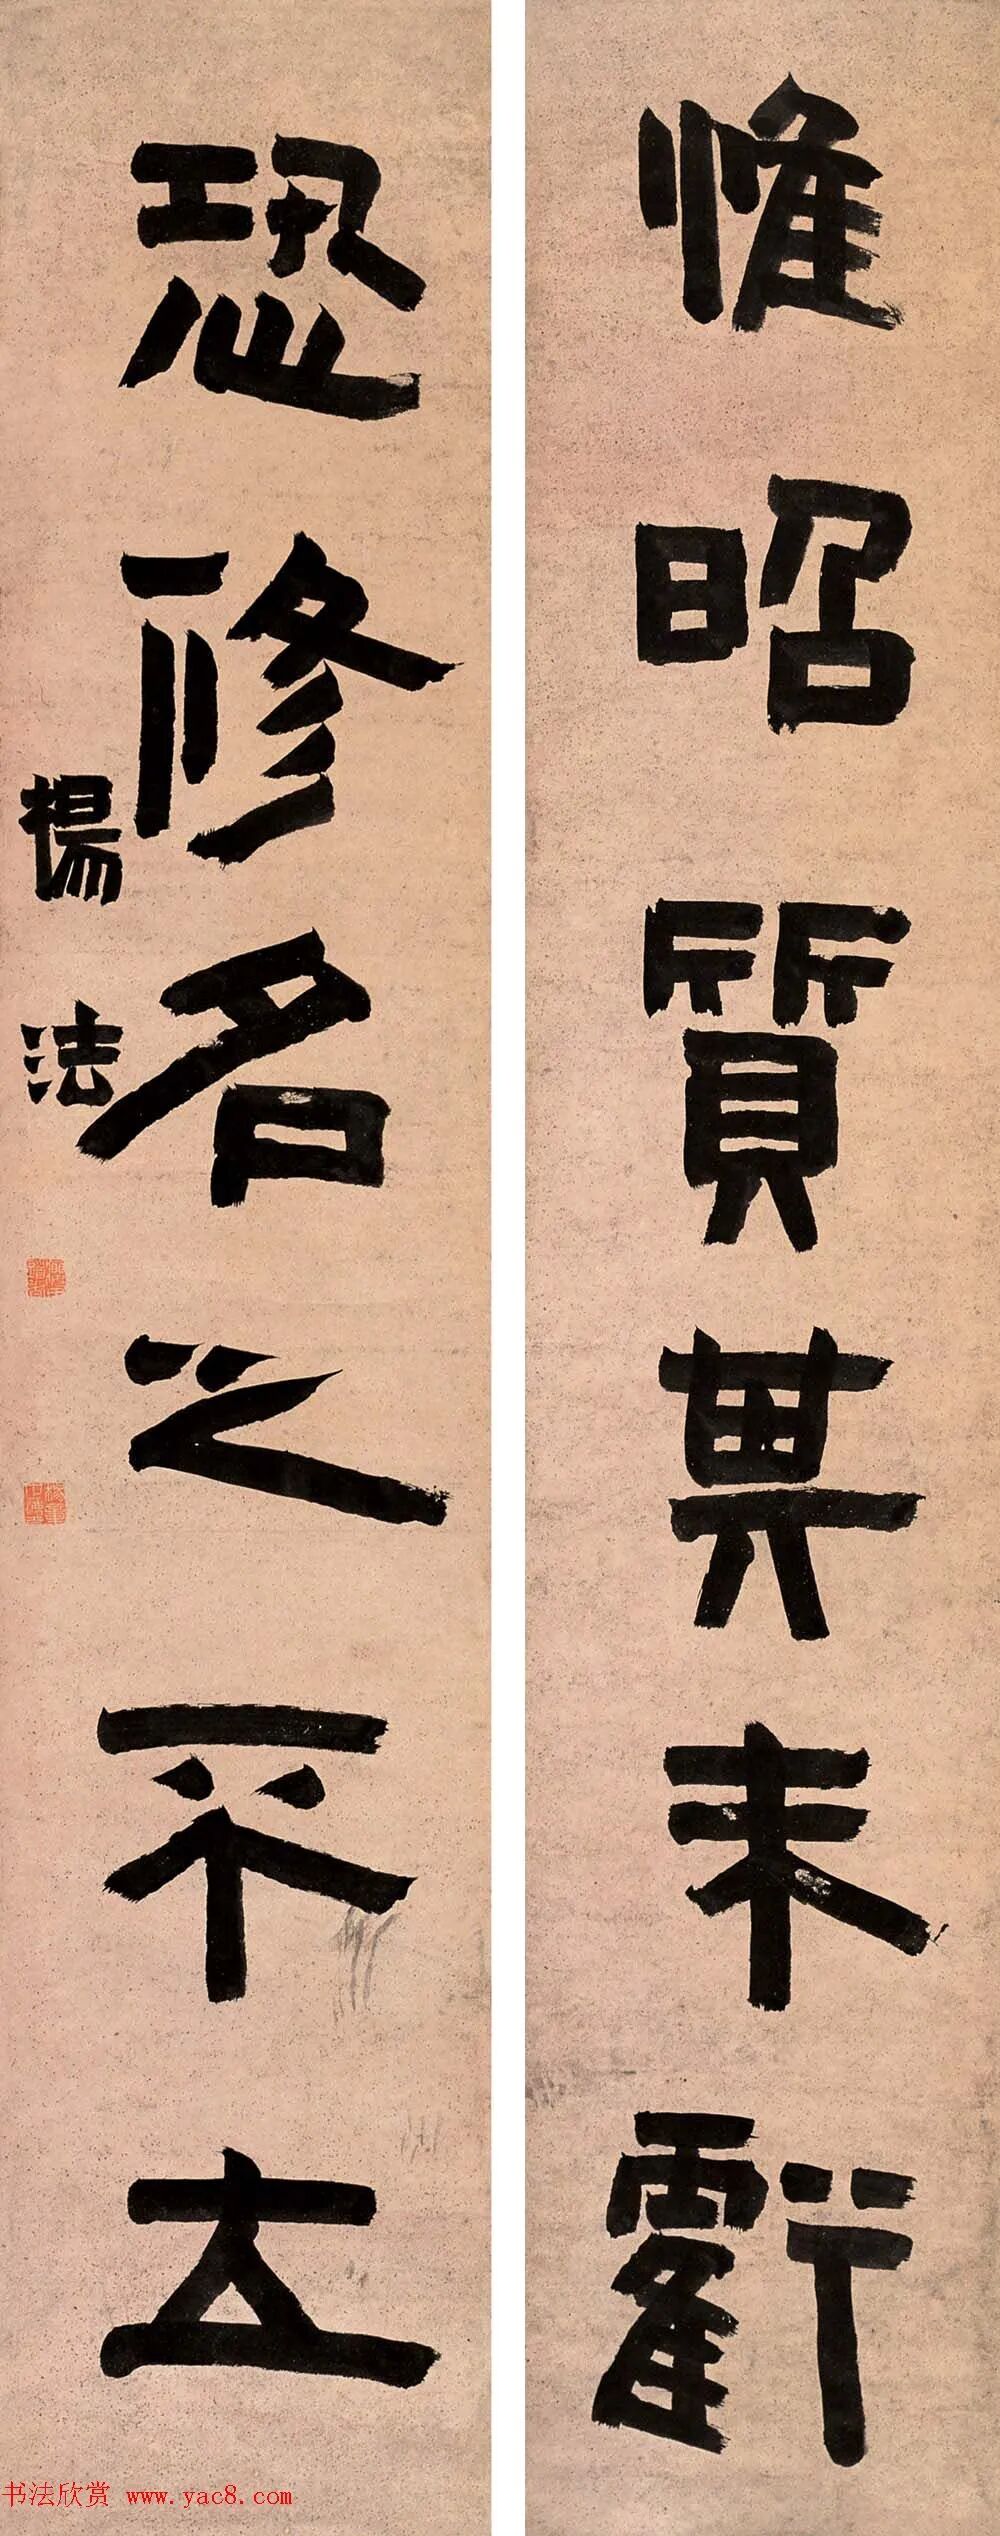 惟昭質其未虧
恐修名之不立
楊法
书法欣赏 www.yac8.com